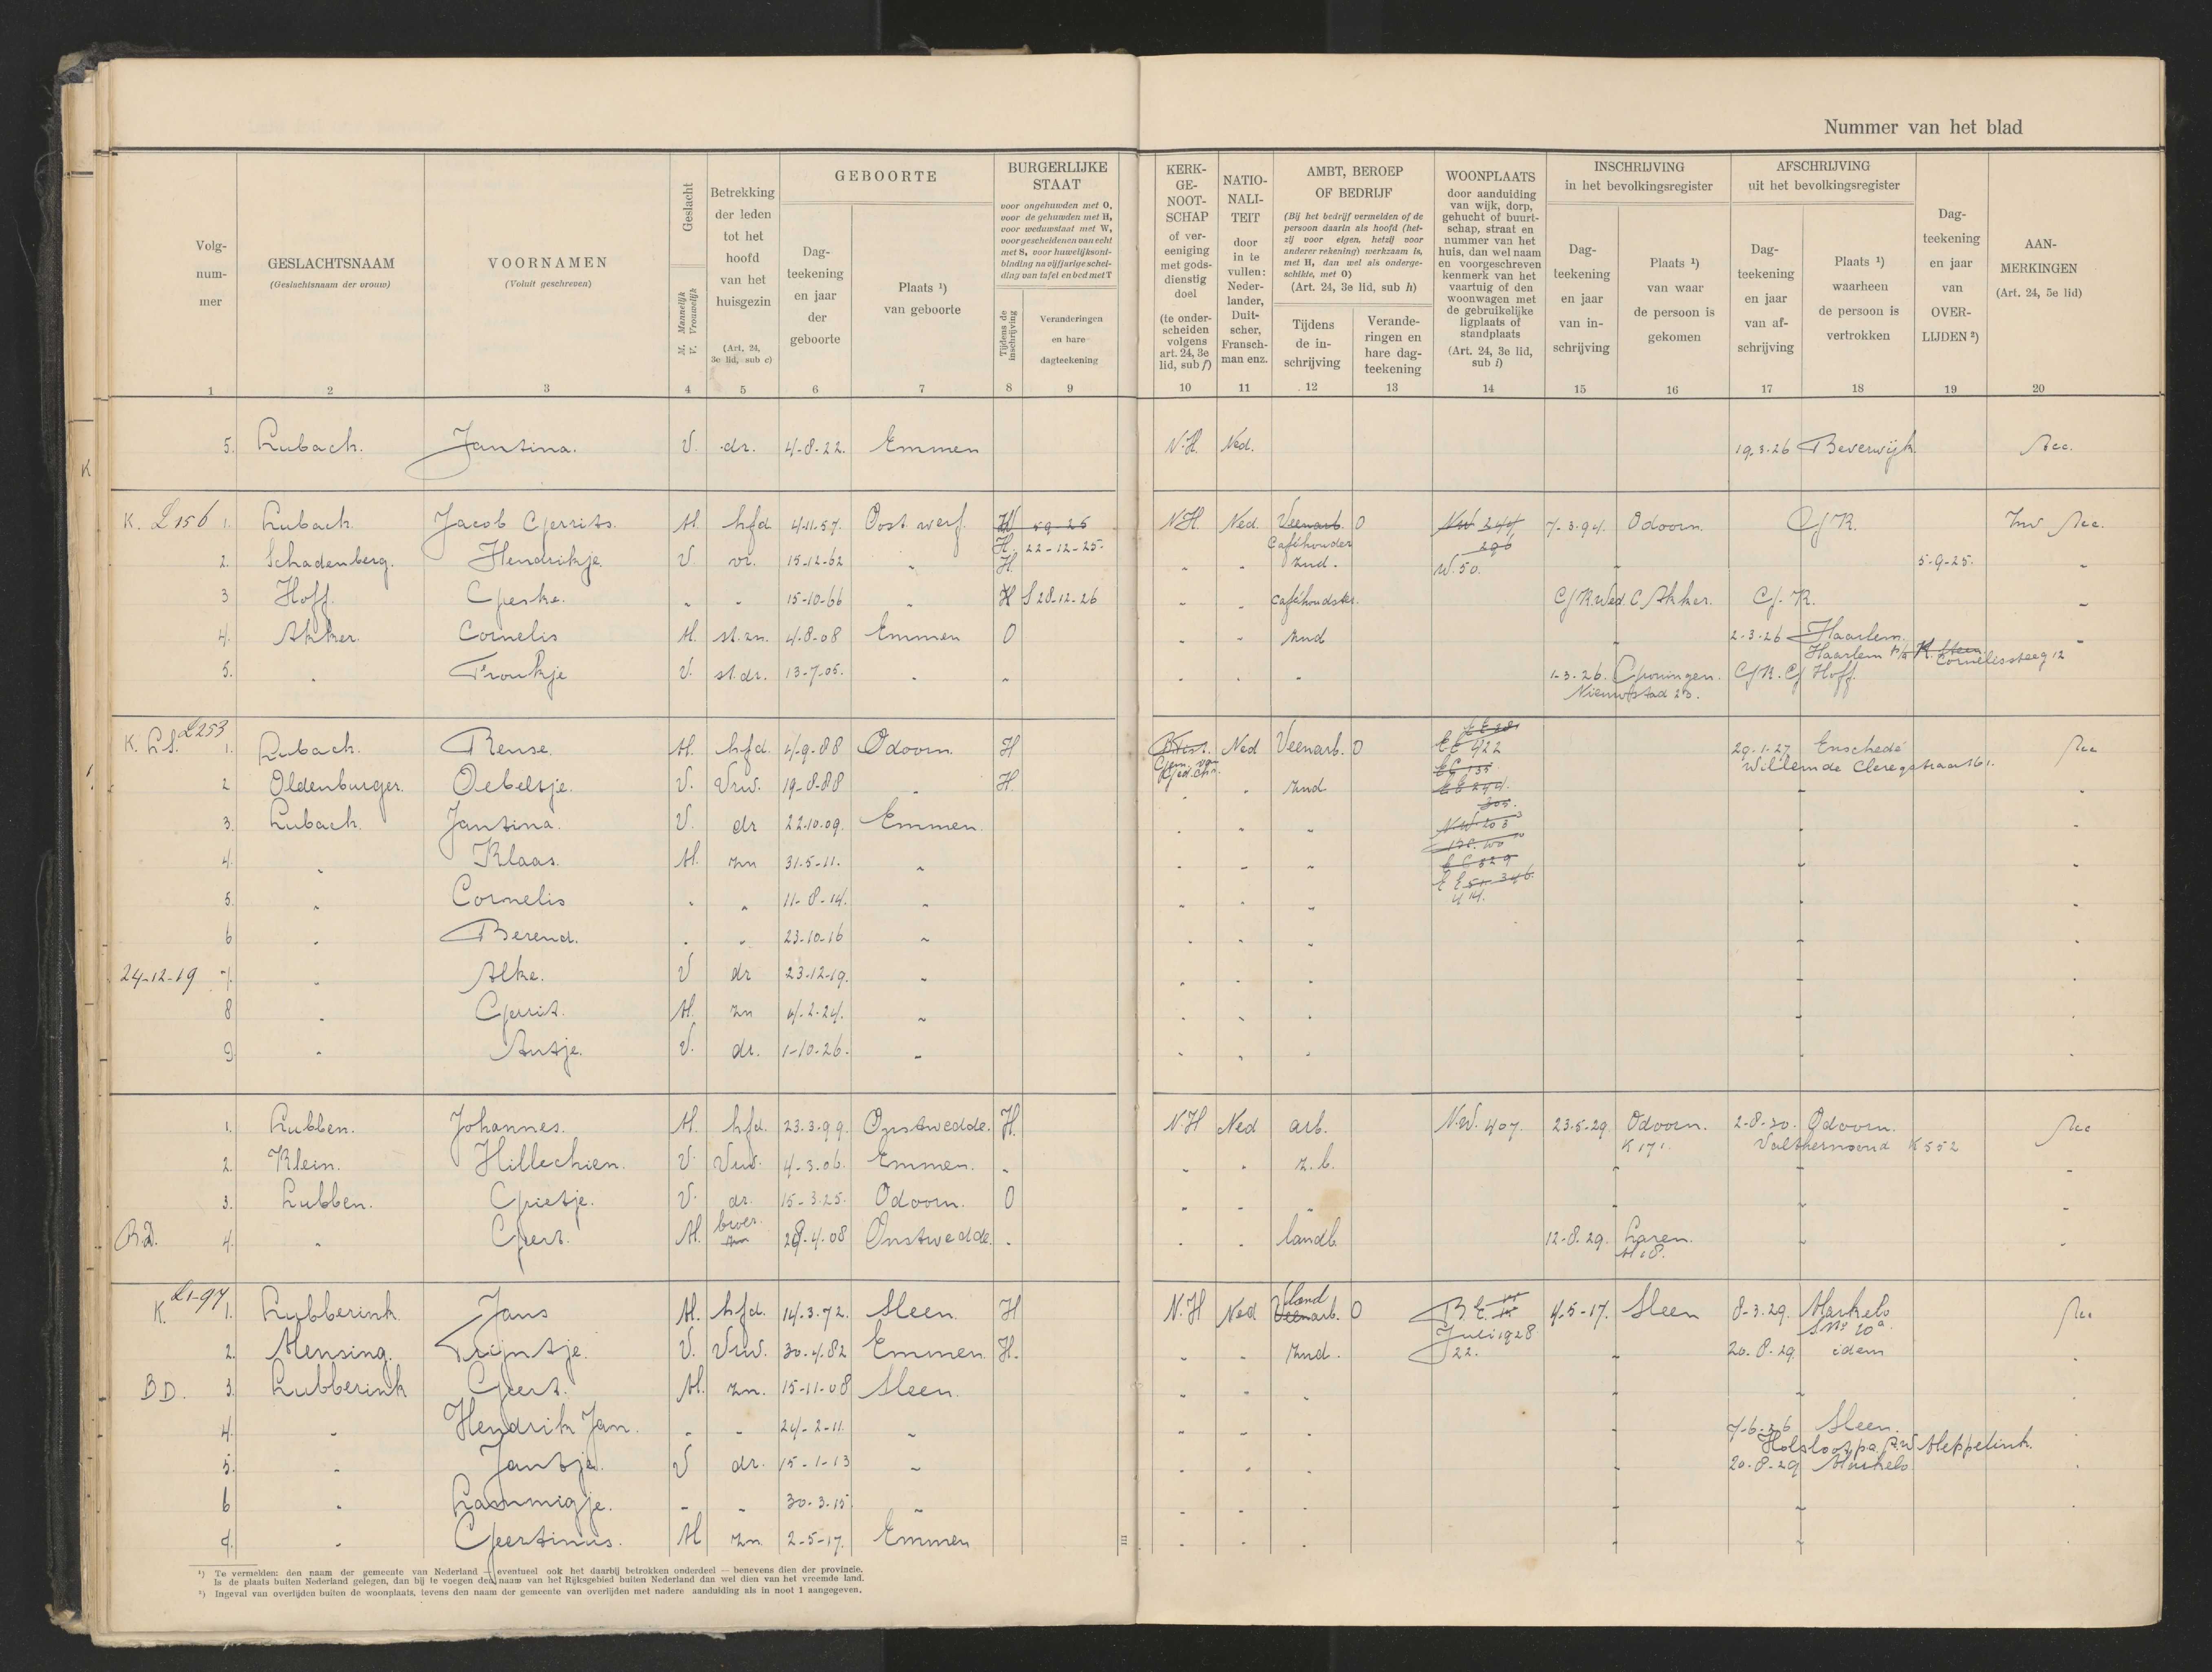 Nummer van het blad
Volg-
num-
mer
1
GESLACHTSNAAM
(Geslachtsnaam der vrouw)
2
VOORNAMEN
(Voluit geschreven)
3
Geslacht
M. Mannelijk
V. Vrouwelijk
4
Betrekking
der leden
tot het
hoofd
van het
huisgezin
(Art. 24,
3e lid, sub c)
5
GEBOORTE
Dag-
teekening
en jaar
der
geboorte
6
Plaats ¹)
van geboorte
7
BURGERLIJKE
STAAT
voor ongehuwden met O,
voor de gehuwden met H,
voor weduwstaat met W,
voor gescheidenen van echt
met S, voor huwelijksont-
binding na vijfjarige schei-
ding van tafel en bed met T
Tijdens de
inschrijving
8
Veranderingen
en hare
dagteekening
9
KERK-
GE-
NOOT-
SCHAP
of ver-
eeniging
met gods-
dienstig
doel
(te onder-
scheiden
volgens
art. 24, 3e
lid, sub f)
10
NATIO-
NALI-
TEIT
door
in te
vullen:
Neder-
lander,
Duit-
scher,
Fransch-
man enz.
11
AMBT, BEROEP
OF BEDRIJF
(Bij het bedrijf vermelden of de
persoon daarin als hoofd (het-
zij voor eigen, hetzij voor
anderer rekening) werkzaam is,
met H, dan wel als onderge-
schikte, met O)
(Art. 24, 3e lid, sub h)
Tijdens
de in-
schrijving
12
Verande-
ringen en
hare dag-
teekening
13
WOONPLAATS
door aanduiding
van wijk, dorp,
gehucht of buurt-
schap, straat en
nummer van het
huis, dan wel naam
en voorgeschreven
kenmerk van het
vaartuig of den
woonwagen met
de gebruikelijke
ligplaats of
standplaats
(Art. 24, 3e lid,
sub i)
14
INSCHRIJVING
in het bevolkingsregister
Dag-
teekening
en jaar
van in-
schrijving
15
Plaats ¹)
van waar
de persoon is
gekomen
16
AFSCHRIJVING
uit het bevolkingsregister
Dag-
teekening
en jaar
van af-
schrijving
17
Plaats ¹)
waarheen
de persoon is
vertrokken
18
Dag-
teekening
en jaar
van
OVER-
LIJDEN ²)
19
AAN-
MERKINGEN
(Art. 24, 5e lid)
20
5. Lubach. Jantina. V. dr. 4-8-22. Emmen N.H. Ned. 19.3.26 Beverwijk.
K. L156 1. Lubach. Jacob Gerrits. M. hfd 4-11-57. Oost werf. W 5 9 25 N.H. Ned. Veenarb. O NW 244 7-3.94. Odoorn. G/K.
H. 22-12-25. Caféhouder 296
2. Schadenberg. Hendrikje. V. vr. 15-12-62 " H. " " znd. W. 50. 5-9-25. "
3 Hoff. Geeske. " " 15-10-66 " H S 28-12-26 " " caféhoudster. G/K. Wed. C Akker. G/K. "
4. Akker. Cornelis M. st.zn. 4-8-08 Emmen O " " znd 2-3-26 Haarlem. "
Haarlem Cornelissteeg 12
5. " Froukje V. st.dr. 13-7-05. " " " " " 1-3-26. Groningen. G/K. G/ Hoff.
Nieuwstad 23.
K. LS. L253
1. Lubach. Rense. M. hfd. 4-9-88 Odoorn. H Ned Veenarb. O EE 422 29-1-27 Enschede
Willem de Clercqstraat 61.
2 Oldenburger. Oebeltje. V. Vrw. 19-8-88 " H. " " znd "
3. Lubach. Jantina. V. dr 22.10.09. Emmen. " " "
4. " Klaas. M. zn 31-5-11. " " " "
5. " Cornelis " " 11-8-14. " " " "
6 " Berend. " " 23-10-16 " " " "
24-12-19 7. " Alke. V dr 23-12-19. " " " "
8 " Gerrit. M. zn 4-2-24. " " " "
9 " Antje. V. dr. 1-10-26. " " " "
1. Lubben. Johannes. M. hfd. 23.3.99. Onstwedde. H. N.H Ned arb. N.W. 407. 23-5-29. Odoorn. 2-8-30. Odoorn.
K 171. Valthermond K 552
2. Klein. Hillechien. V. Vrw. 4-3-06. Emmen. " " " z.b. " " "
3. Lubben. Grietje. V. dr. 15-3.25. Odoorn. O " " " " " "
B.D. 4. " Geert. M. broer. zn 28-4-08 Onstwedde. " " " landb. 12-8.29. Haren.
K. L1-97
1. Lubberink Jans M. hfd. 14-3.72. Sleen. H N.H Ned Veenarb. land O B.E. 4-5-17. Sleen 8-3.29. Markelo
Juli 1928
22.
2. Mensing. Trijntje. V. Vrw. 30-4.82 Emmen. H. " " znd. " 20-8-29 idem
BD. 3. Lubberink Geert. M. zn. 15-11-08 Sleen. " " " " "
4. " Hendrik Jan. " " 24-2-11. " " " " " 7-6-36 Sleen.
5. " Jantje. V dr. 15-1-13 " " " " " 20-8-29 Markelo
6 " Lammigje. " " 30-3-15. " " " " " "
7. " Geertinus. M zn. 2-5-17. Emmen " " " " "
¹) Te vermelden: den naam der gemeente van Nederland — eventueel ook het daarbij betrokken onderdeel — benevens dien der provincie.
Is de plaats buiten Nederland gelegen, dan bij te voegen den naam van het Rijksgebied buiten Nederland dan wel dien van het vreemde land.
²) Ingeval van overlijden buiten de woonplaats, tevens den naam der gemeente van overlijden met nadere aanduiding als in noot 1 aangegeven.